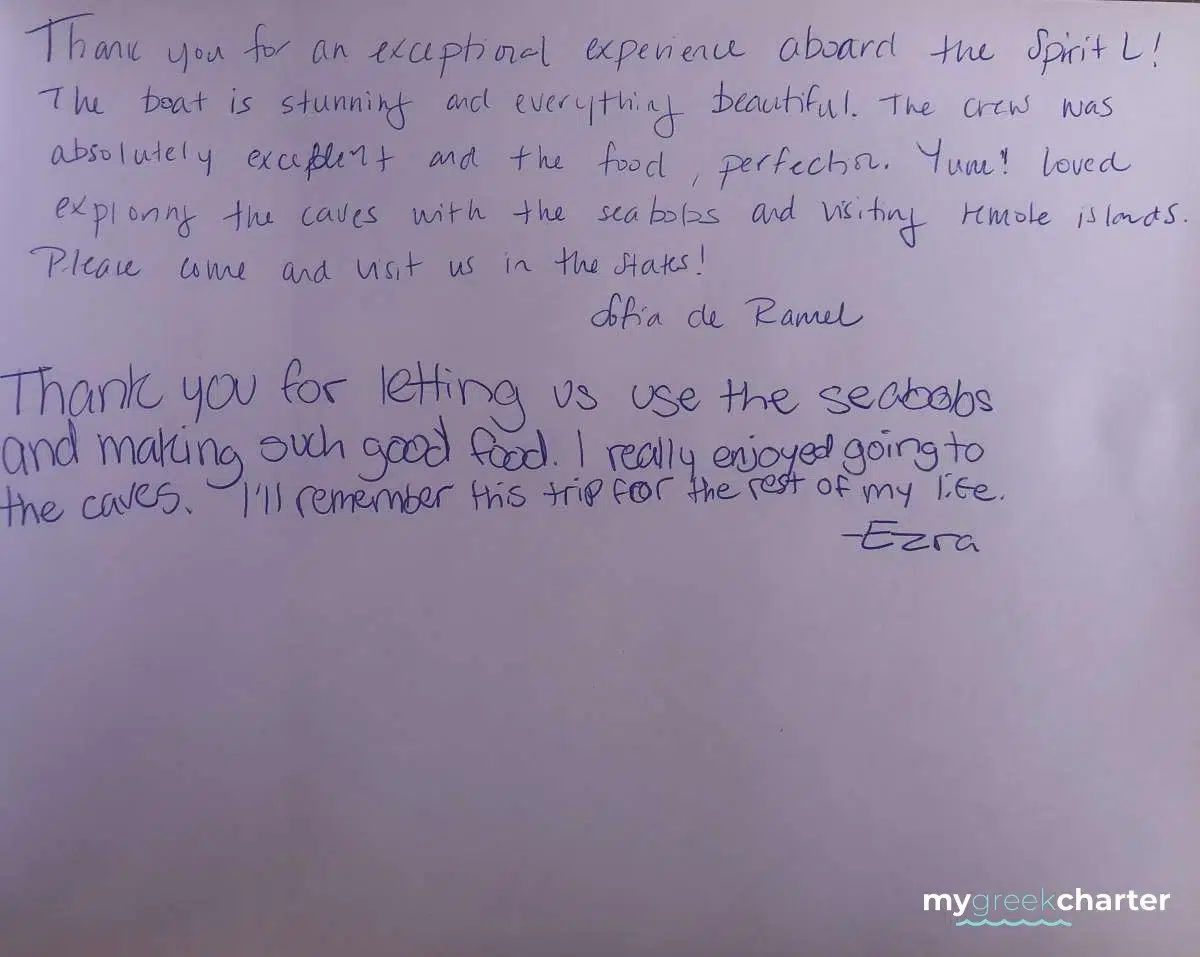 Thank you for an exceptional experience aboard the Spirit L!
The boat is stunning and everything beautiful. The crew was
absolutely excellent and the food, perfection. Yum! loved
exploring the caves with the seabobs and visiting remote islands.
Please come and visit us in the States!
Sofia de Ramel
Thank you for letting us use the seabobs
and making such good food. I really enjoyed going to
the caves. I'll remember this trip for the rest of my life.
-Ezra
mygreekcharter